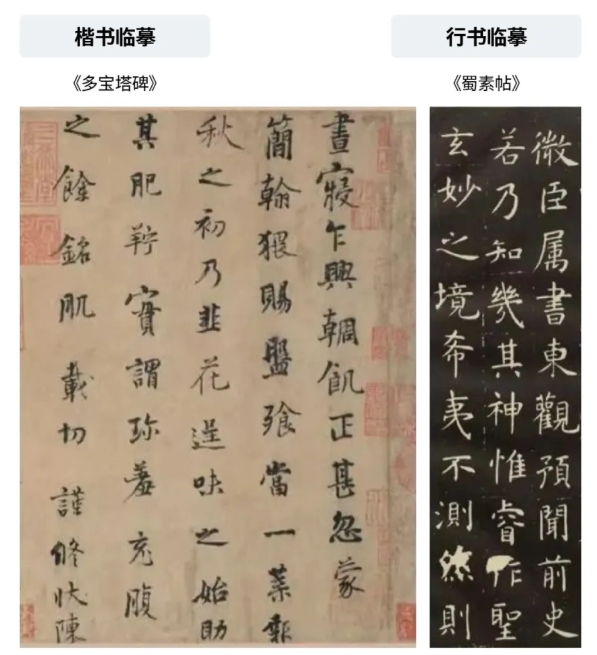 楷书临摹
《多宝塔碑》
晝寢乍興輖飢正甚忽蒙
簡翰猥賜盤飧當一葉報
秋之初乃韭花逞味之始助
其肥羜實謂珍羞充腹
之餘銘肌載切謹修狀陳
行书临摹
《蜀素帖》
微臣属書東觀預聞前史
若乃知幾其神惟睿作聖
玄妙之境希夷不測然則